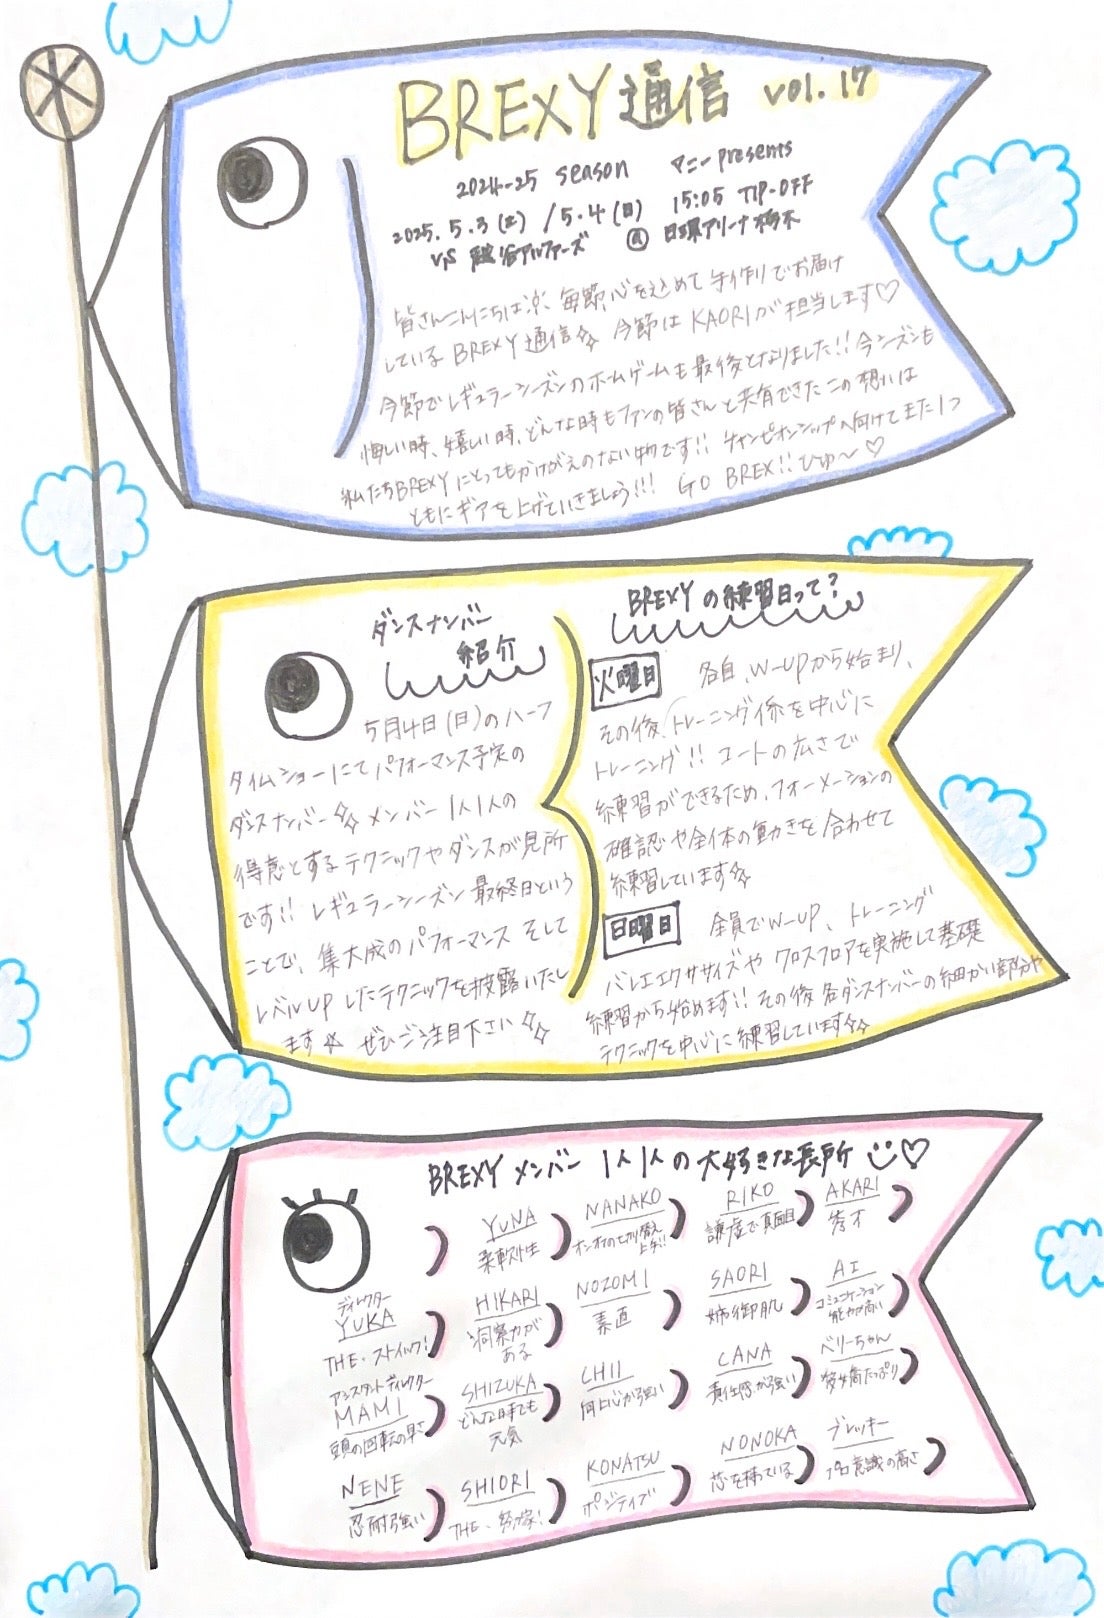 BREXY通信 vol.17
2024-25 season マニー presents
2025.5.3(土)/5.4(日) 15:05 TIP-OFF
VS 越谷アルファーズ @ 日環アリーナ栃木
皆さんこんにちは 毎節心を込めて手作りでお届け
しているBREXY通信 今節はKAORIが担当します♡
今節でレギュラーシーズンのホームゲームも最後となりました!! 今シーズンも
悔しい時、嬉しい時、どんな時もファンの皆さんと共有できたこの想いは
私たちBREXYにとってもかけがえのない物です!! チャンピオンシップへ向けてまた1つ
ともにギアを上げていきましょう!!! GO BREX!! ひゅ〜♡
ダンスナンバー
紹介
5月4日(日)のハーフ
タイムショーにてパフォーマンス予定の
ダンスナンバー メンバー1人1人の
得意とするテクニックやダンスが見所
です!! レギュラーシーズン最終日という
ことで、集大成のパフォーマンス そして
レベルUPしたテクニックを披露いたし
ます☆ ぜひご注目下さい
BREXYの練習日って?
火曜日 各自、W-UPから始まり、
その後、トレーニング係を中心に
トレーニング!! コートの広さで
練習ができるため、フォーメーションの
確認や全体の動きを合わせて
練習しています
日曜日 全員でW-UP、トレーニング
バレエエクササイズやクロスフロアを実施して基礎
練習から始めます!! その後各ダンスナンバーの細かい部分や
テクニックを中心に練習しています
BREXYメンバー1人1人の大好きな長所♡
ディレクター
YUKA
THE・ストイック!
アシスタントディレクター
MAMI
頭の回転の早さ
NENE
忍耐強い
YUNA
柔軟性
HIKARI
洞察力が
ある
SHIZUKA
どんな時でも
元気
SHIORI
THE・努力家!
NANAKO
オンオフの切り替え
上手!!
NOZOMI
素直
CHII
向上心が強い
KONATSU
ポジティブ
RIKO
謙虚で真面目
SAORI
姉御肌
CANA
責任感が強い
NONOKA
芯を持っている
AKARI
秀才
AI
コミュニケーション
能力が高い
ベリーちゃん
愛嬌たっぷり
ブレッキー
プロ意識の高さ